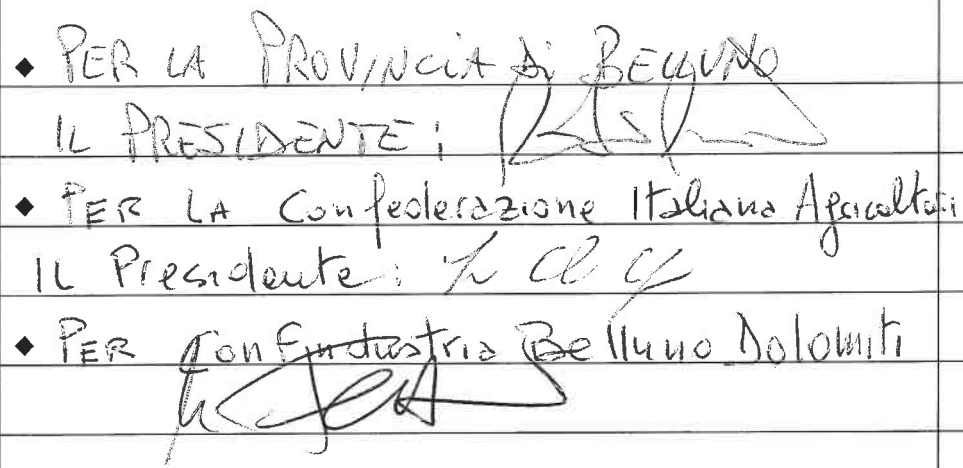 ◆ PER LA PROVINCIA di BELLUNO
IL PRESIDENTE:
◆ PER LA Confederazione Italiana Agricoltori
IL Presidente:
◆ PER Confindustria Belluno Dolomiti